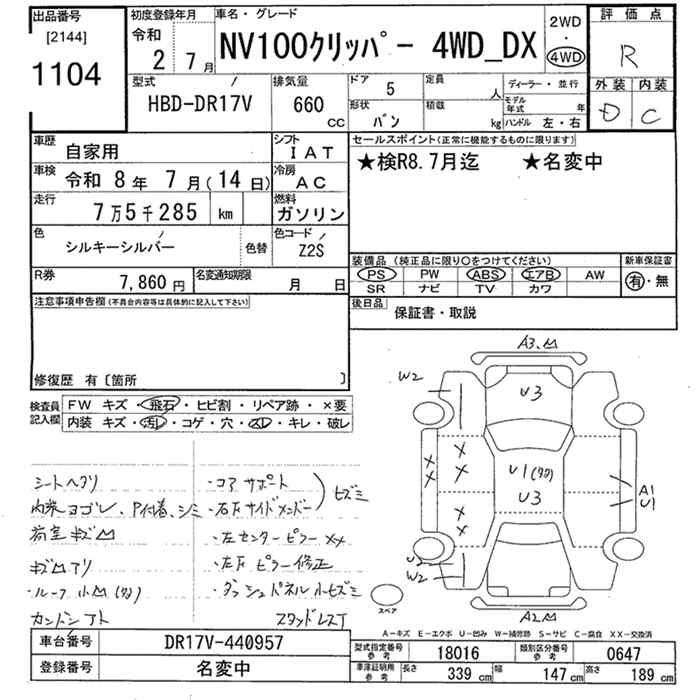 出品番号
[2144]
1104
初度登録年月
令和
2 7月
車名・グレード
NV100クリッパー 4WD_DX
2WD
・
4WD
評価点
R
外装 内装
D C
型式
HBD-DR17V
排気量
660 CC
ドア 5
定員 人
ディーラー・並行
形状 バン
積載 kg
モデル年式 年
ハンドル 左・右
車歴 自家用
シフト IAT
車検 令和 8年 7月(14日)
冷房 AC
走行 7万5千285 km
燃料 ガソリン
色 シルキーシルバー
色替
色コード Z2S
R券 7,860円
名変通知期限 月 日
セールスポイント(正常に機能するものに限ります)
★検R8.7月迄 ★名変中
装備品 (純正品に限り○をつけてください)
新車保証書
PS PW ABS エアB AW
SR ナビ TV カワ
有・無
後日品
保証書・取説
注意事項申告欄(不具合内容等は具体的に記入して下さい)
修復歴 有〔箇所 〕
検査員記入欄
FW キズ・飛石・ヒビ割・リペア跡・×要
内装 キズ・汚レ・コゲ・穴・スレ・キレ・破レ
シートヘタリ
内装ヨゴレ、P付着、シミ
荷室キズ凹
キズ凹アリ
・ルーフ小凹(タタ)
・コアサポート
・右F サイドメンバー
ヒズミ
・左センターピラー XX
・左F ピラー修正
・ダッシュパネル小ヒズミ
スタッドレスT
A3.凹
W2
U3
U1(タタ)
U3
A1
U1
U2
W2
A2凹
スペア
A-キズ E-エクボ U-凹み W-補修跡 S-サビ C-腐食 XX-交換済
車台番号 DR17V-440957
登録番号 名変中
型式指定番号 参考 18016
類別区分番号 参考 0647
車庫証明用 参考 長さ 339 cm 幅 147 cm 高さ 189 cm